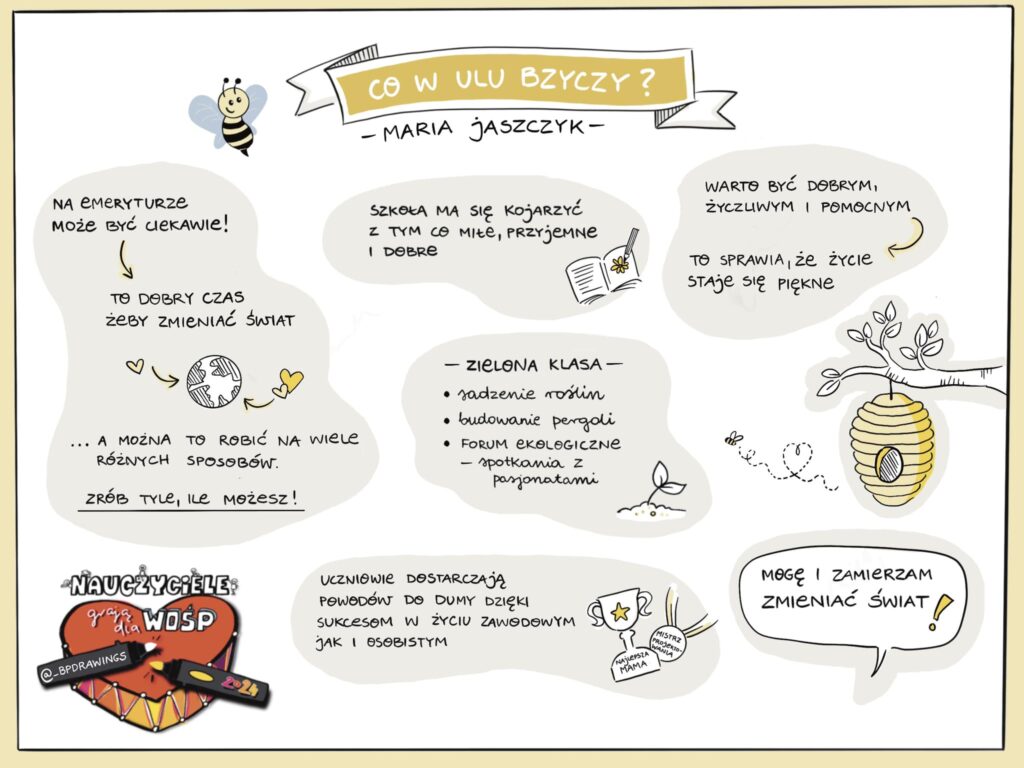 CO W ULU BZYCZY?
– MARIA JASZCZYK –
NA EMERYTURZE
MOŻE BYĆ CIEKAWIE!
TO DOBRY CZAS
ŻEBY ZMIENIAĆ ŚWIAT
... A MOŻNA TO ROBIĆ NA WIELE
RÓŻNYCH SPOSOBÓW.
ZRÓB TYLE, ILE MOŻESZ!
SZKOŁA MA SIĘ KOJARZYĆ
Z TYM CO MIŁE, PRZYJEMNE
I DOBRE
WARTO BYĆ DOBRYM,
ŻYCZLIWYM I POMOCNYM
TO SPRAWIA, ŻE ŻYCIE
STAJE SIĘ PIĘKNE
– ZIELONA KLASA –
• sadzenie roślin
• budowanie pergoli
• FORUM EKOLOGICZNE
– spotkania z
pasjonatami
UCZNIOWIE DOSTARCZAJĄ
POWODÓW DO DUMY DZIĘKI
SUKCESOM W ŻYCIU ZAWODOWYM
JAK I OSOBISTYM
NAJLEPSZA
MAMA
MISTRZ
PROJEKTO-
WANIA
MOGĘ I ZAMIERZAM
ZMIENIAĆ ŚWIAT!
NAUCZYCIELE
grają
dla WOŚP
@_BPDRAWINGS
2024